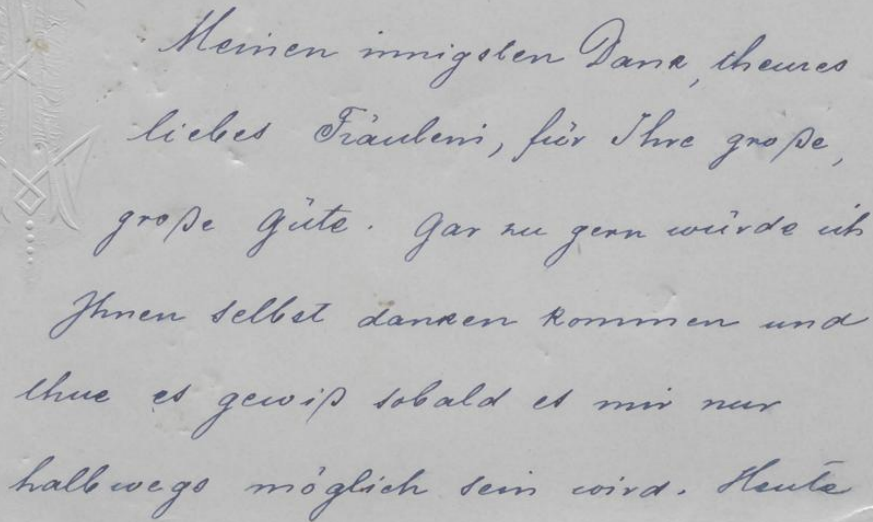 Meinen innigsten Dank, theures
liebes Fräulein, für Ihre große,
große Güte. Gar zu gern würde ich
Ihnen selbst danken kommen und
thue es gewiß sobald es mir nur
halbwegs möglich sein wird. Heute